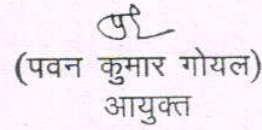 (पवन कुमार गोयल)
आयुक्त